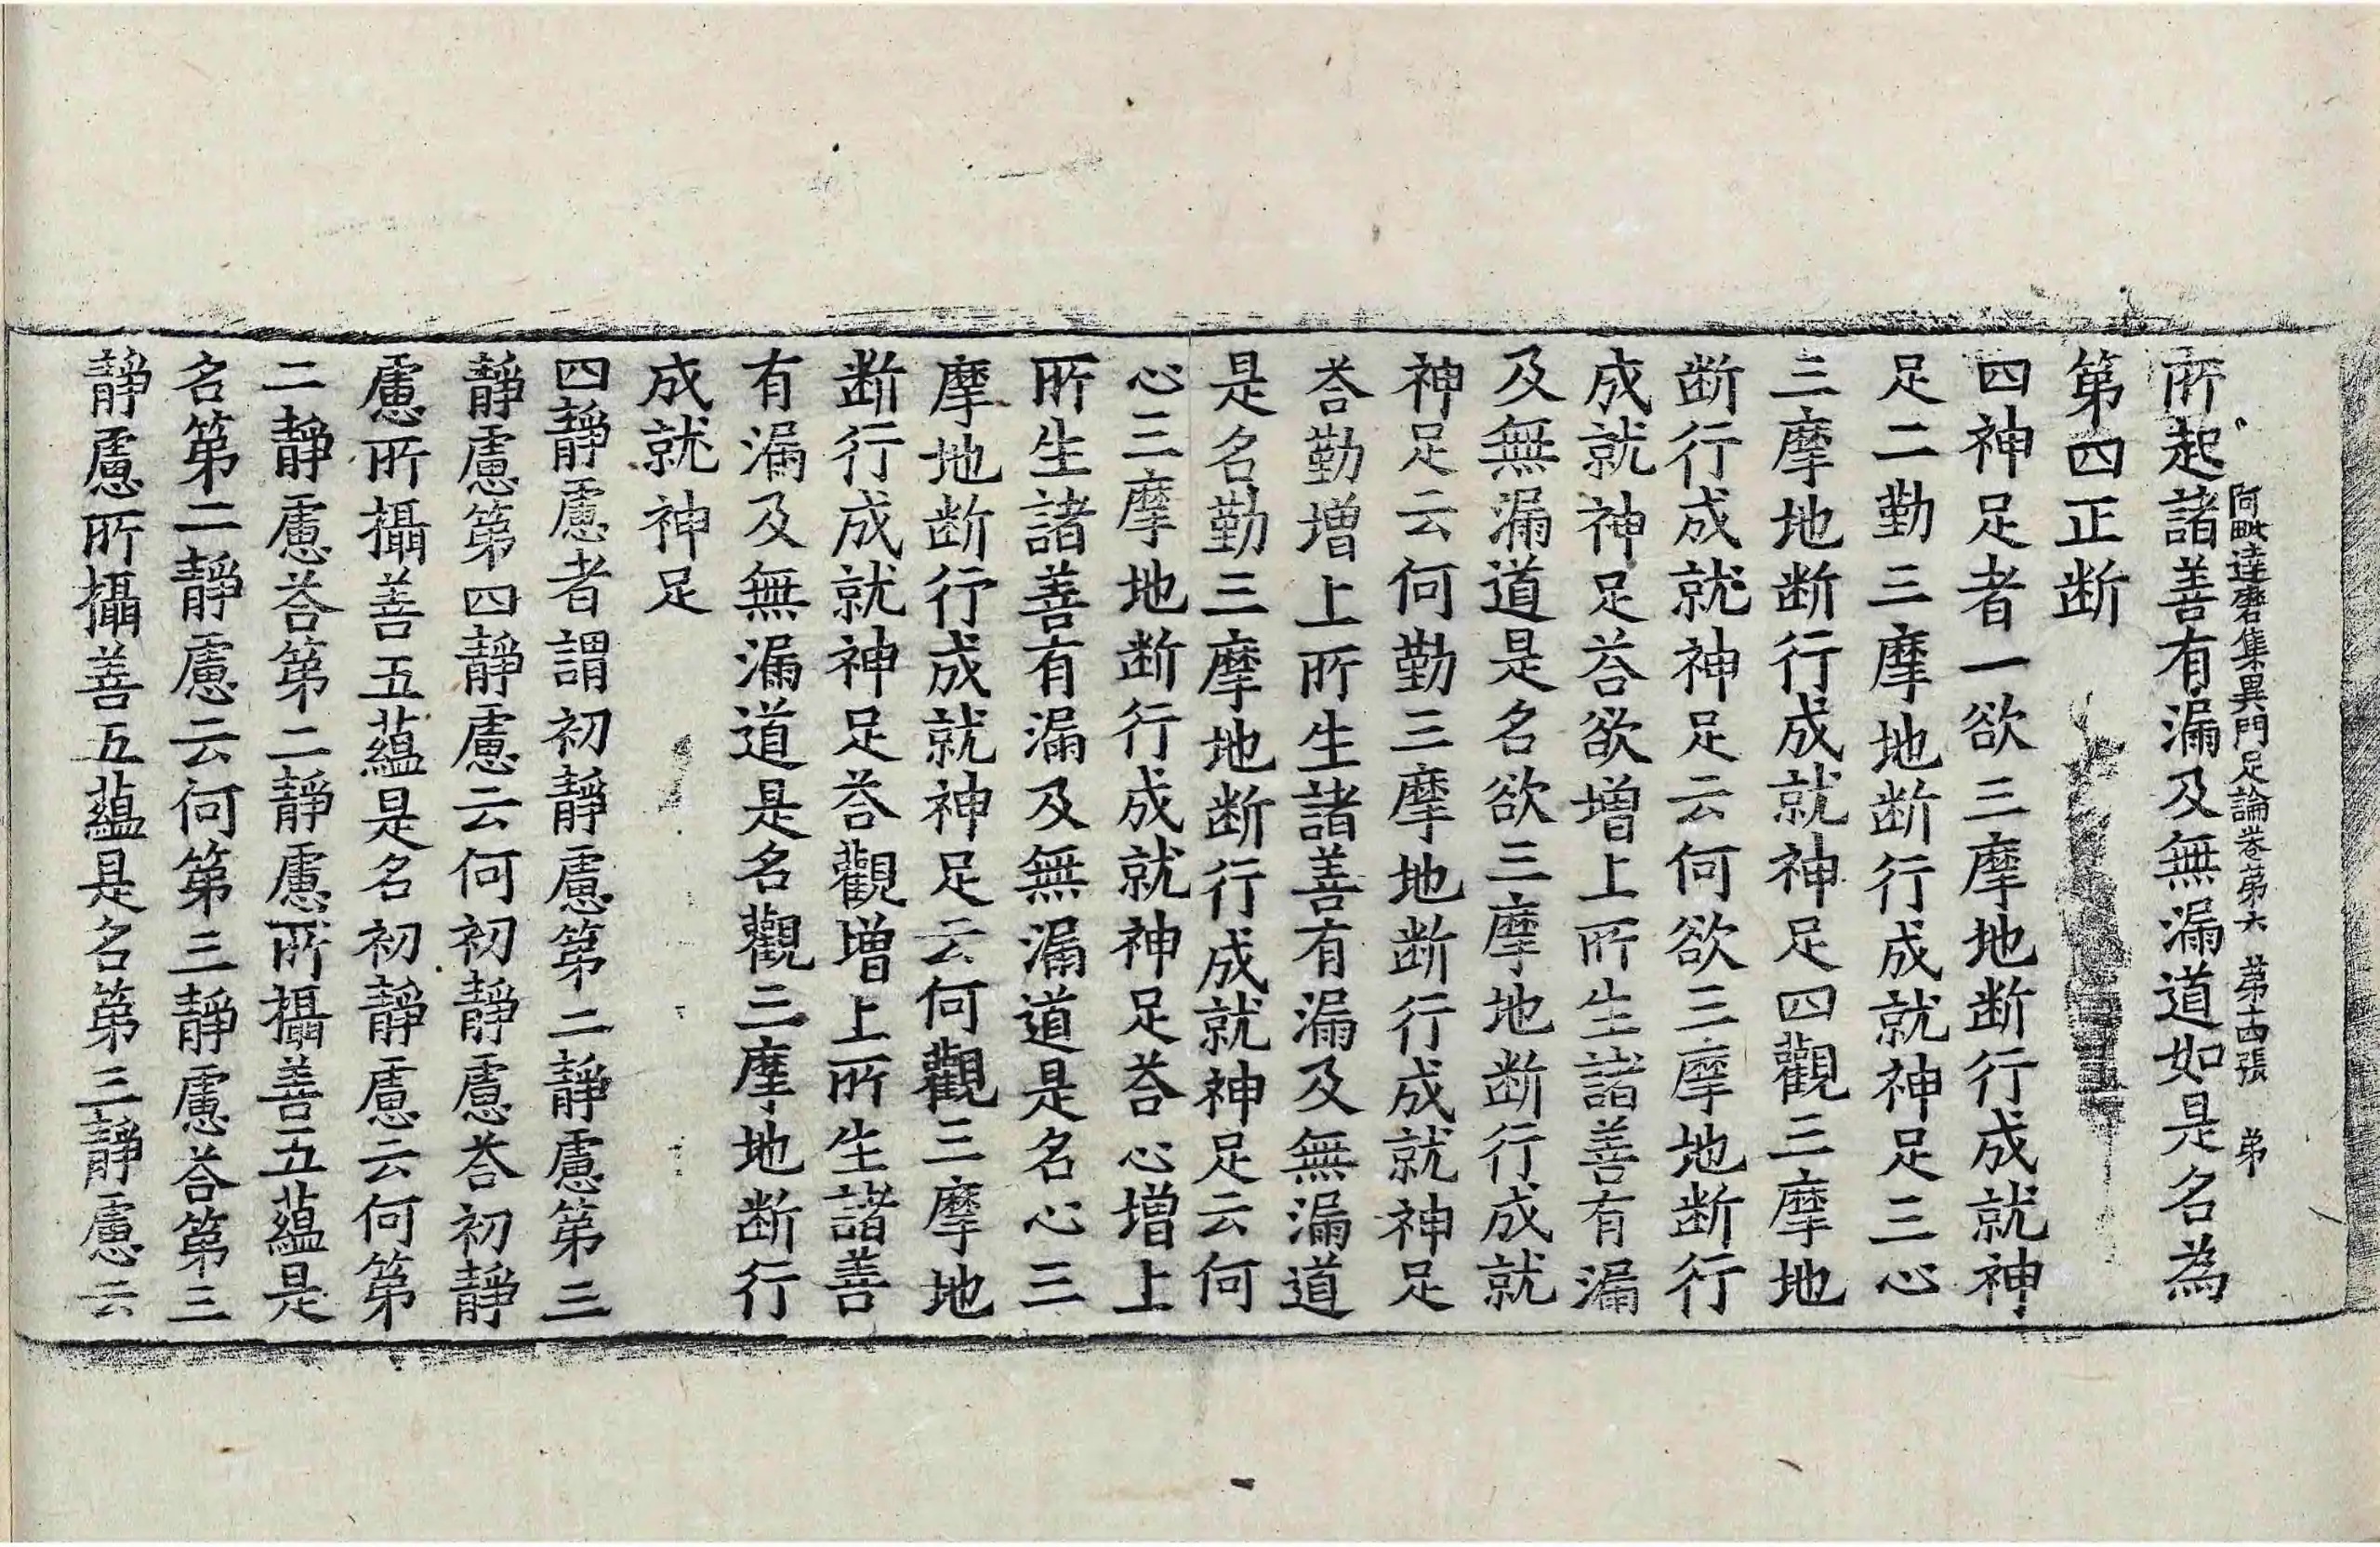 阿毗達磨集異門足論卷第六 第十四張 弟
所起諸善有漏及無漏道如是名為
第四正断
四神足者一欲三摩地断行成就神
足二勤三摩地断行成就神足三心
三摩地断行成就神足四觀三摩地
断行成就神足云何欲三摩地断行
成就神足荅欲增上所生諸善有漏
及無漏道是名欲三摩地断行成就
神足云何勤三摩地断行成就神足
荅勤增上所生諸善有漏及無漏道
是名勤三摩地断行成就神足云何
心三摩地断行成就神足荅心增上
所生諸善有漏及無漏道是名心三
摩地断行成就神足云何觀三摩地
断行成就神足荅觀增上所生諸善
有漏及無漏道是名觀三摩地断行
成就神足
四靜慮者謂初靜慮第二靜慮第三
靜慮第四靜慮云何初靜慮荅初靜
慮所攝善五蘊是名初靜慮云何第
二靜慮荅第二靜慮所攝善五蘊是
名第二靜慮云何第三靜慮荅第三
靜慮所攝善五蘊是名第三靜慮云